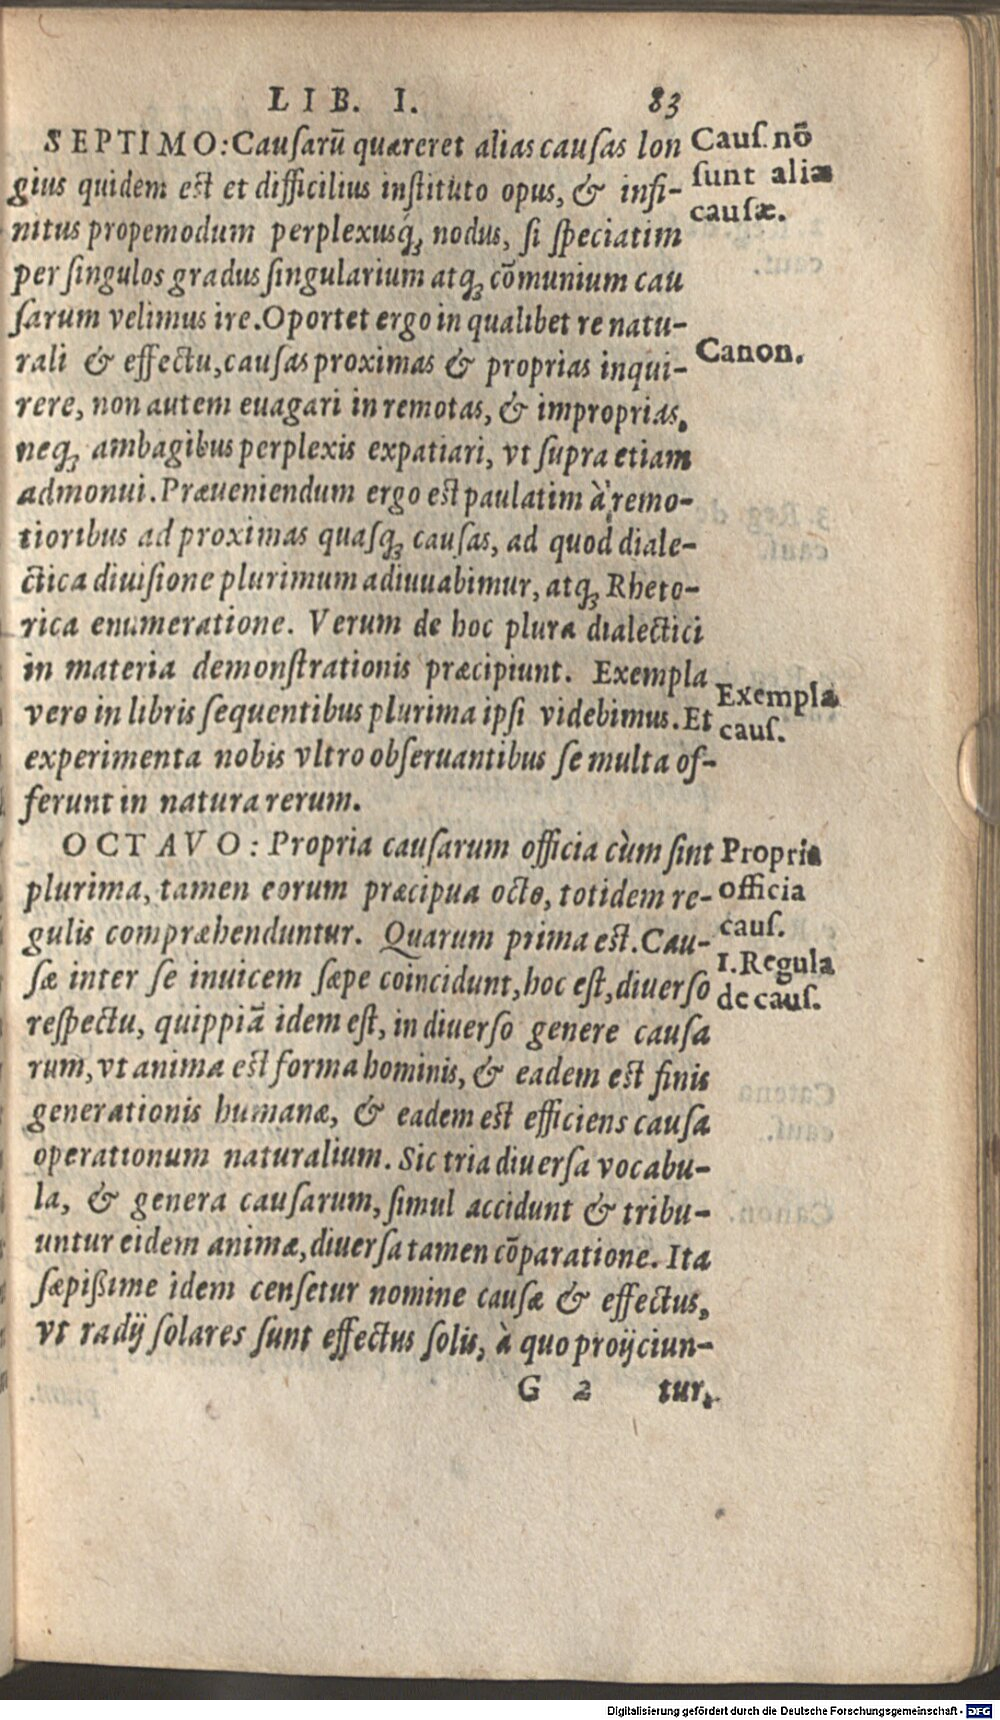 LIB. I. 83
SEPTIMO: Causarũ quæreret alias causas lon
gius quidem est et difficilius instituto opus, & infi-
nitus propemodum perplexusq́ꝫ nodus, si speciatim
per singulos gradus singularium atqꝫ cõmunium cau
sarum velimus ire. Oportet ergo in qualibet re natu-
rali & effectu, causas proximas & proprias inqui-
rere, non autem euagari in remotas, & improprias,
neqꝫ ambagibus perplexis expatiari, vt supra etiam
admonui. Præueniendum ergo est paulatim à remo-
tioribus ad proximas quasqꝫ causas, ad quod diale-
ctica diuisione plurimum adiuuabimur, atqꝫ Rheto-
rica enumeratione. Verum de hoc plura dialectici
in materia demonstrationis præcipiunt. Exempla
vero in libris sequentibus plurima ipsi videbimus. Et
experimenta nobis vltro obseruantibus se multa of-
ferunt in natura rerum.
OCTAVO: Propria causarum officia cùm sint
plurima, tamen eorum præcipua octo, totidem re-
gulis compræhenduntur. Quarum prima est. Cau-
sæ inter se inuicem sæpe coincidunt, hoc est, diuerso
respectu, quippiã idem est, in diuerso genere causa
rum, vt anima est forma hominis, & eadem est finis
generationis humanæ, & eadem est efficiens causa
operationum naturalium. Sic tria diuersa vocabu-
la, & genera causarum, simul accidunt & tribu-
untur eidem animæ, diuersa tamen cõparatione. Ita
sæpißime idem censetur nomine causæ & effectus,
vt radij solares sunt effectus solis, à quo proijciun-
G 2 tur,
Caus. nõ
sunt aliæ
causæ.
Canon.
Exempla
caus.
Propria
officia
caus.
1. Regula
de caus.
Digitalisierung gefördert durch die Deutsche Forschungsgemeinschaft - DFG